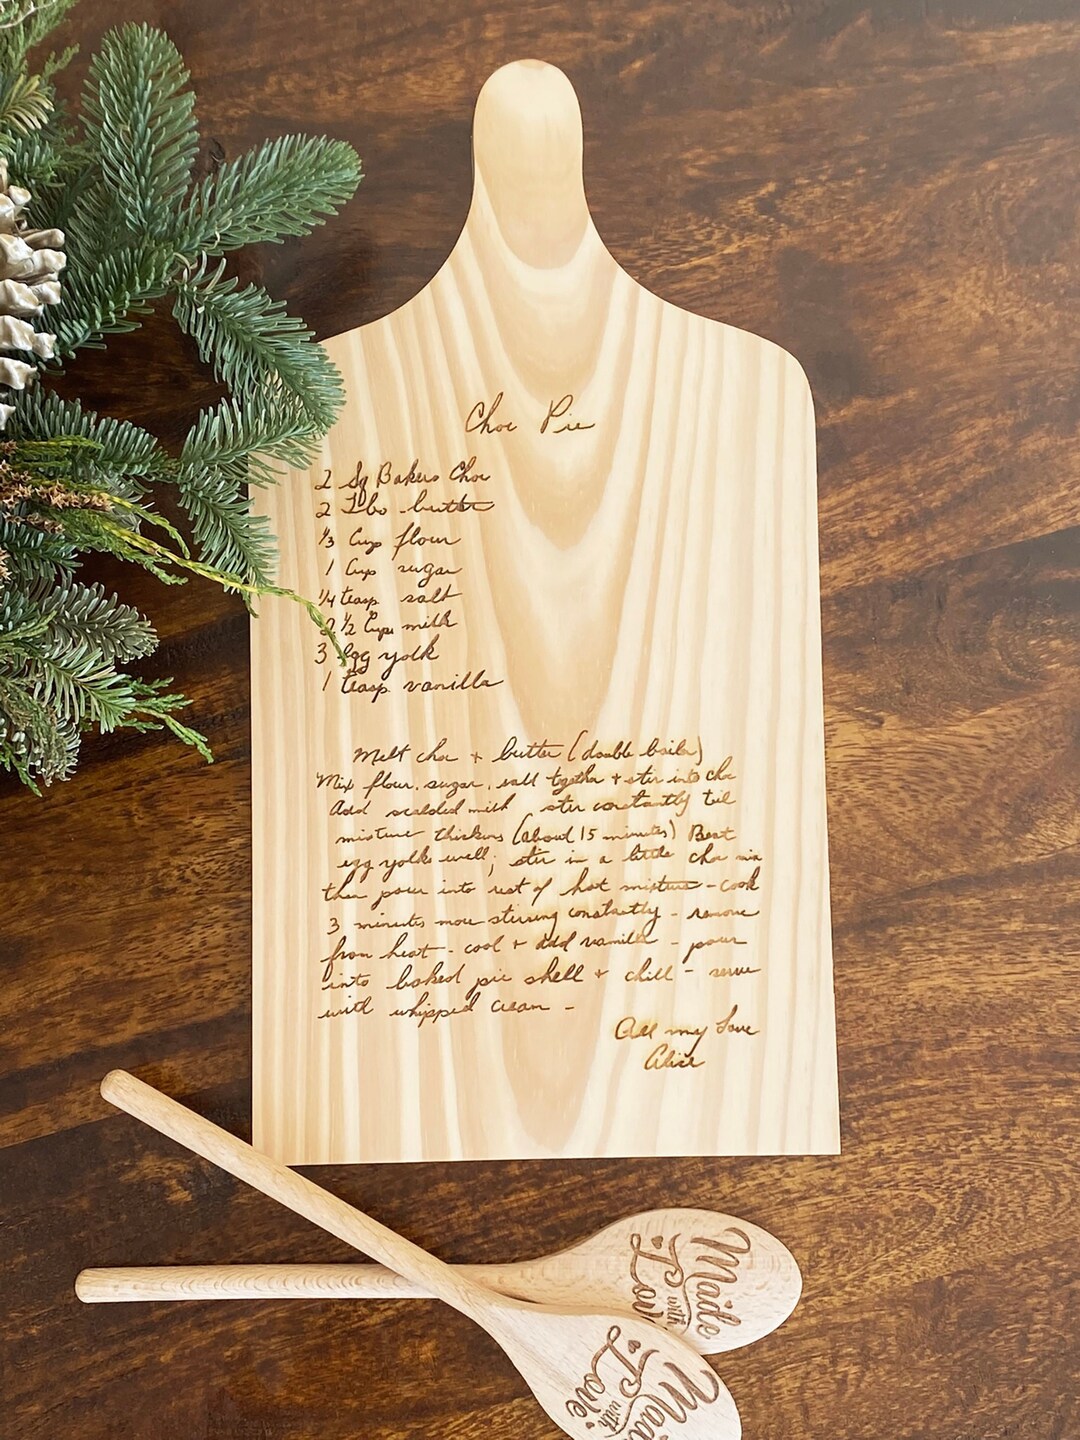 Choc Pie
2 Sq Bakers Choc
2 Tbs butter
1/3 Cup flour
1 Cup sugar
1/4 teasp salt
2 1/2 Cups milk
3 egg yolk
1 teasp vanilla
Melt choc + butter (double boiler)
Mix flour, sugar, salt together + stir into choc
Add scalded milk, stir constantly til
mixture thickens (about 15 minutes) Beat
egg yolks well; stir in a little choc mix
then pour into rest of hot mixture - cook
3 minutes more stirring constantly - remove
from heat - cool + add vanilla - pour
into baked pie shell + chill - serve
with whipped cream -
All my love
Alice
Made
with
Love
Made
with
Love